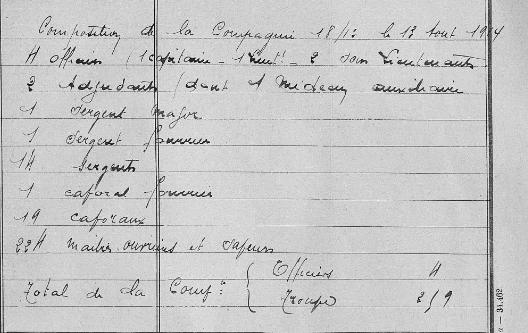 Composition de la Compagnie le 13 Aout 1914
4 officiers (1 capitaine - 1 Lieutt - 2 sous Lieutenants
2 Adjudants (dont 1 Médecin auxiliaire
1 Sergent major
1 Sergent fourrier
14 Sergents
1 caporal fourrier
19 caporaux
224 maitres ouvriers et sapeurs
Total de la Comp.ie { Officiers 4
Troupe 259
— 34.462